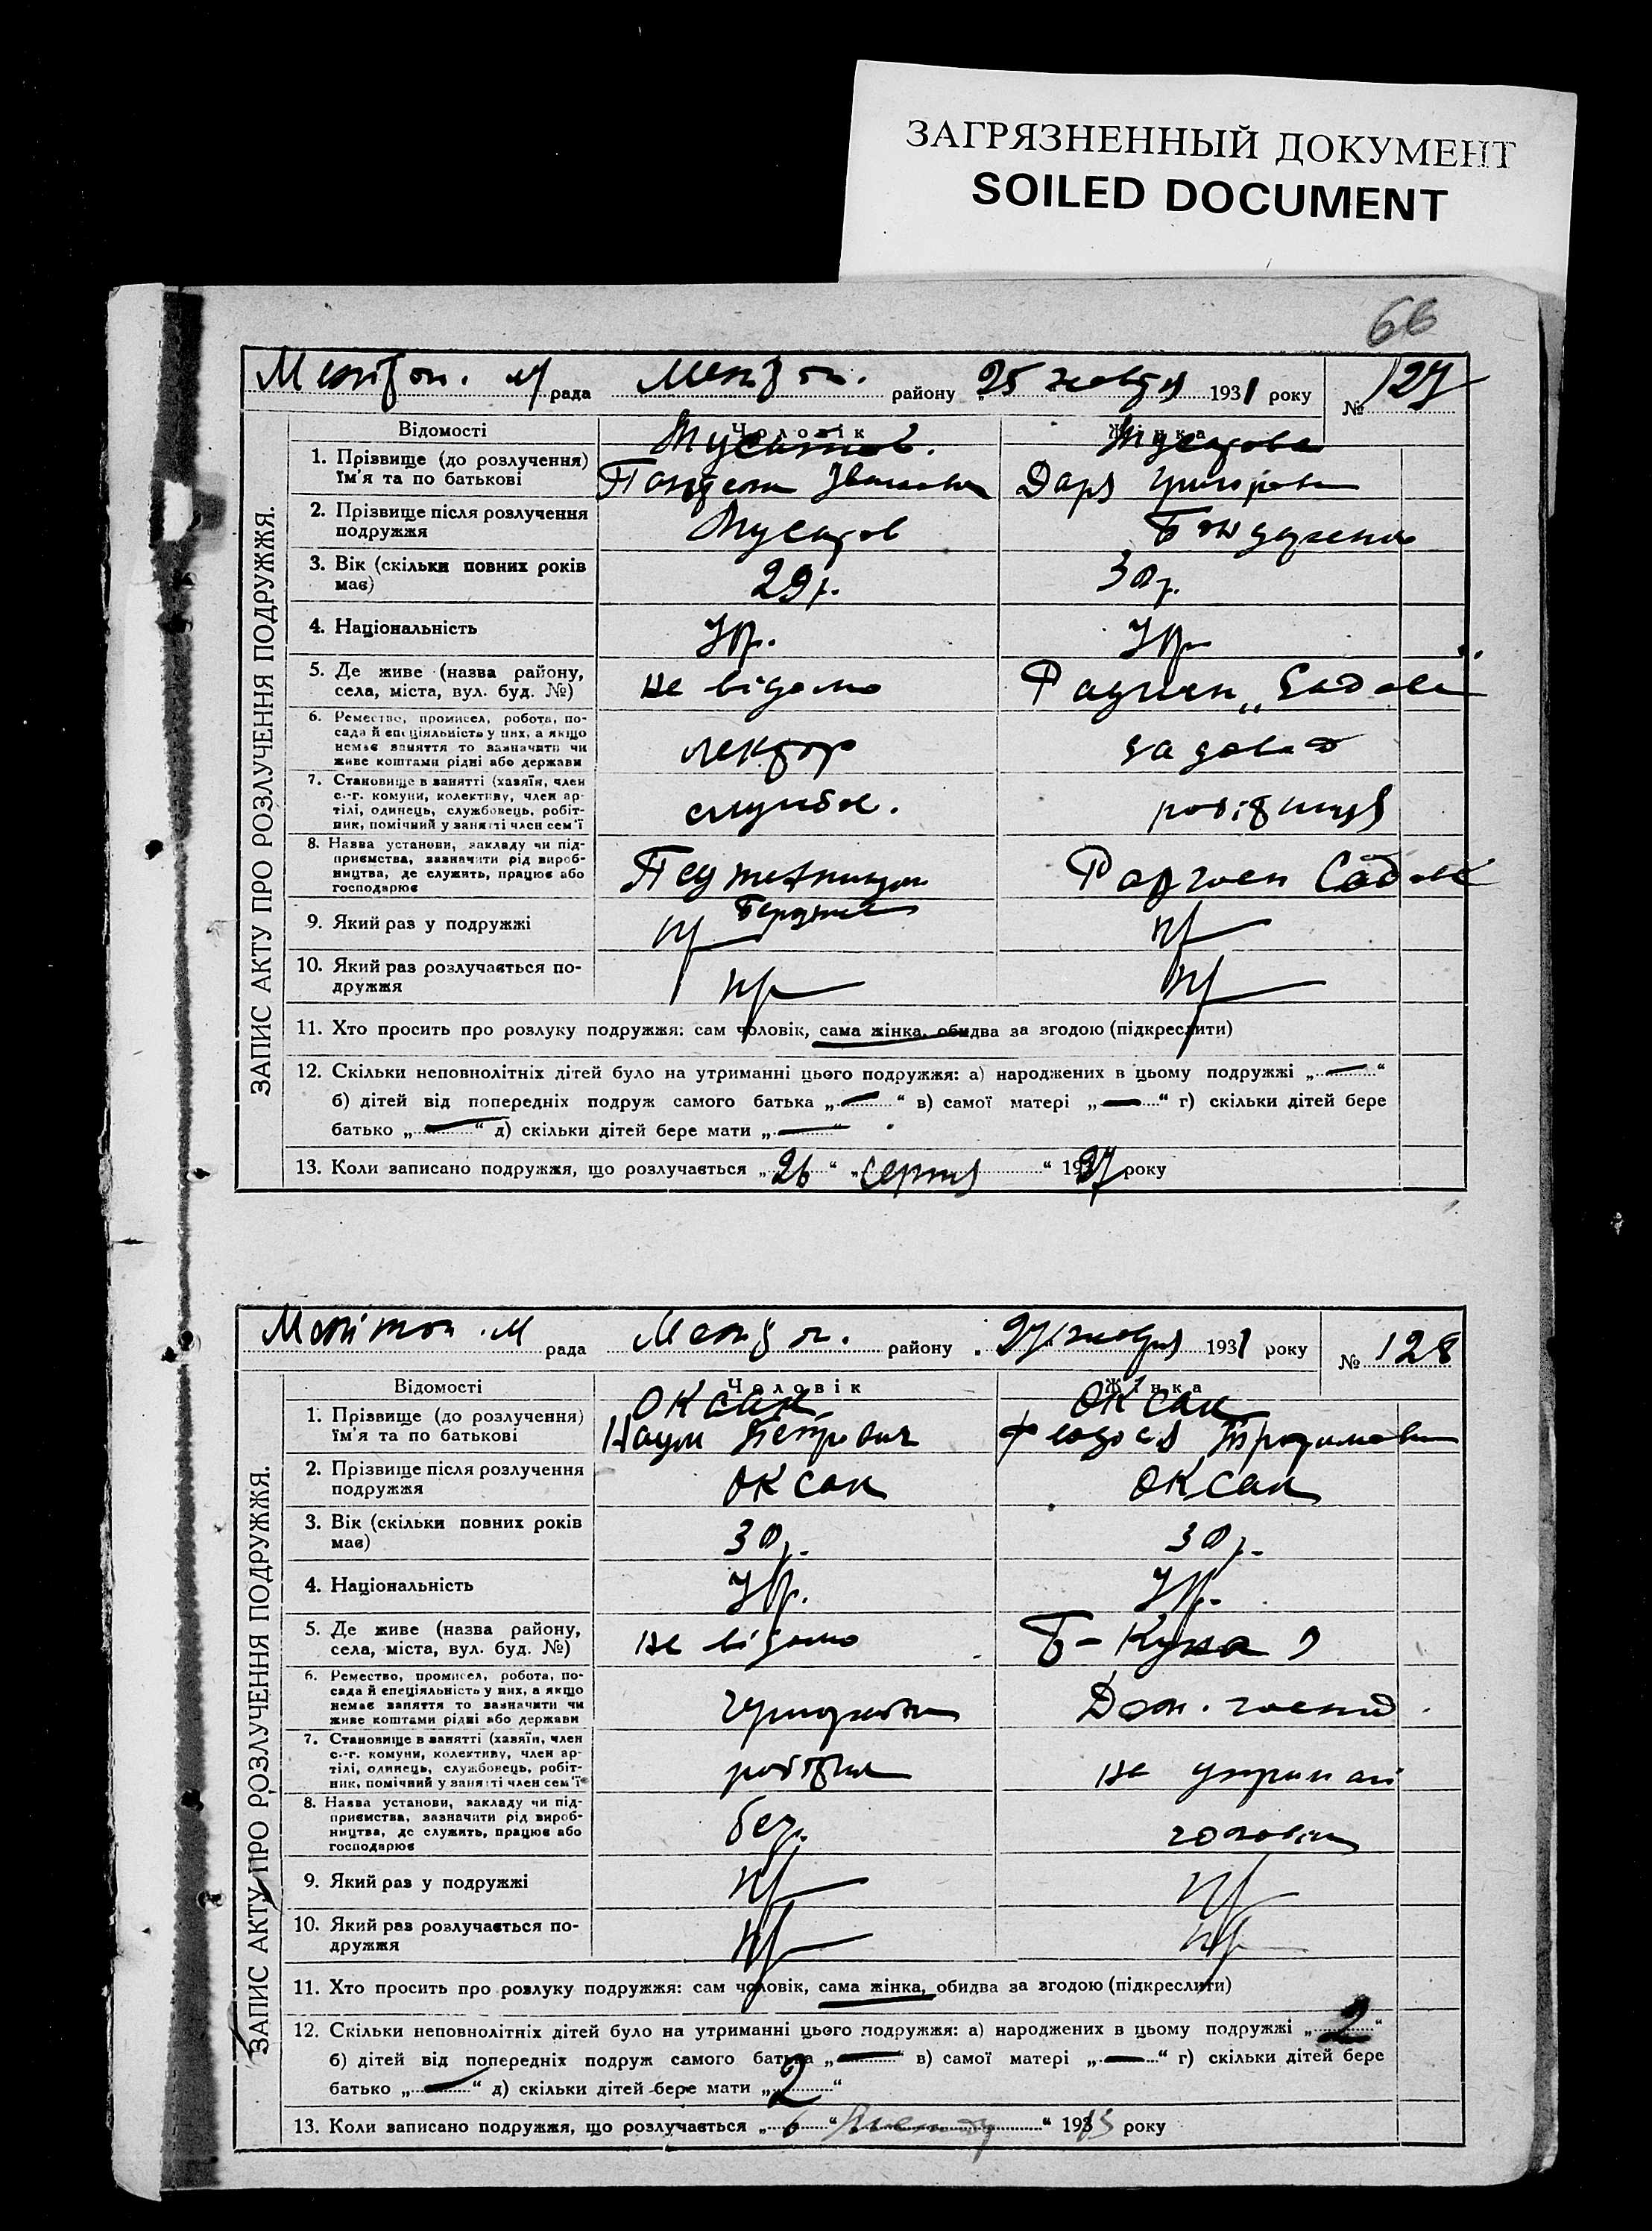 ЗАГРЯЗНЕННЫЙ ДОКУМЕНТ
SOILED DOCUMENT
66
рада району 25 жовтня 1931 року № 127
ЗАПИС АКТУ ПРО РОЗЛУЧЕННЯ ПОДРУЖЖЯ.
Відомості Чоловік Жінка
1. Прізвище (до розлучення)
їм'я та по батькові
Даря
2. Прізвище після розлучення
подружжя
3. Вік (скільки повних років
має)
29 р. 30 р.
4. Національність
Укр. Укр
5. Де живе (назва району,
села, міста, вул. буд. №)
не відомо
6. Ремество, промисел, робота, по-
сада й спеціяльність у них, а якщо
немає заняття то зазначити чи
живе коштами рідні або держави
лектор
7. Становище в занятті (хазяїн, член
с.-г. комуни, колективу, член ар-
тілі, одинець, службовець, робіт-
ник, помічний у занятті член сем'ї
службов. робітниця
8. Назва установи, закладу чи під-
приємства, зазначити рід вироб-
ництва, де служить, працює або
господарює
9. Який раз у подружжі
пр пр
10. Який раз розлучається по-
дружжя
пр пр
11. Хто просить про розлуку подружжя: сам чоловік, сама жінка, обидва за згодою (підкреслити)
12. Скільки неповнолітніх дітей було на утриманні цього подружжя: а) народжених в цьому подружжі „—“
б) дітей від попередніх подруж самого батька „—“ в) самої матері „—“ г) скільки дітей бере
батько „—“ д) скільки дітей бере мати „—“
13. Коли записано подружжя, що розлучається „26“ „серпня“ 1927 року
рада району 27 жовтня 1931 року № 128
ЗАПИС АКТУ ПРО РОЗЛУЧЕННЯ ПОДРУЖЖЯ.
Відомості Чоловік Жінка
Оксак Оксак
1. Прізвище (до розлучення)
їм'я та по батькові
Наум Петрович Феодося
2. Прізвище після розлучення
подружжя
Оксак Оксак
3. Вік (скільки повних років
має)
30 р. 30 р.
4. Національність
Укр. Укр.
5. Де живе (назва району,
села, міста, вул. буд. №)
не відомо
6. Ремество, промисел, робота, по-
сада й спеціяльність у них, а якщо
немає заняття то зазначити чи
живе коштами рідні або держави
Дом. господ.
7. Становище в занятті (хазяїн, член
с.-г. комуни, колективу, член ар-
тілі, одинець, службовець, робіт-
ник, помічний у занятті член сем'ї
робітник на утриман
8. Назва установи, закладу чи під-
приємства, зазначити рід вироб-
ництва, де служить, працює або
господарює
9. Який раз у подружжі
пр пр
10. Який раз розлучається по-
дружжя
пр пр
11. Хто просить про розлуку подружжя: сам чоловік, сама жінка, обидва за згодою (підкреслити)
12. Скільки неповнолітніх дітей було на утриманні цього подружжя: а) народжених в цьому подружжі „2“
б) дітей від попередніх подруж самого батька „—“ в) самої матері „—“ г) скільки дітей бере
батько „—“ д) скільки дітей бере мати „2“
13. Коли записано подружжя, що розлучається „6“ року